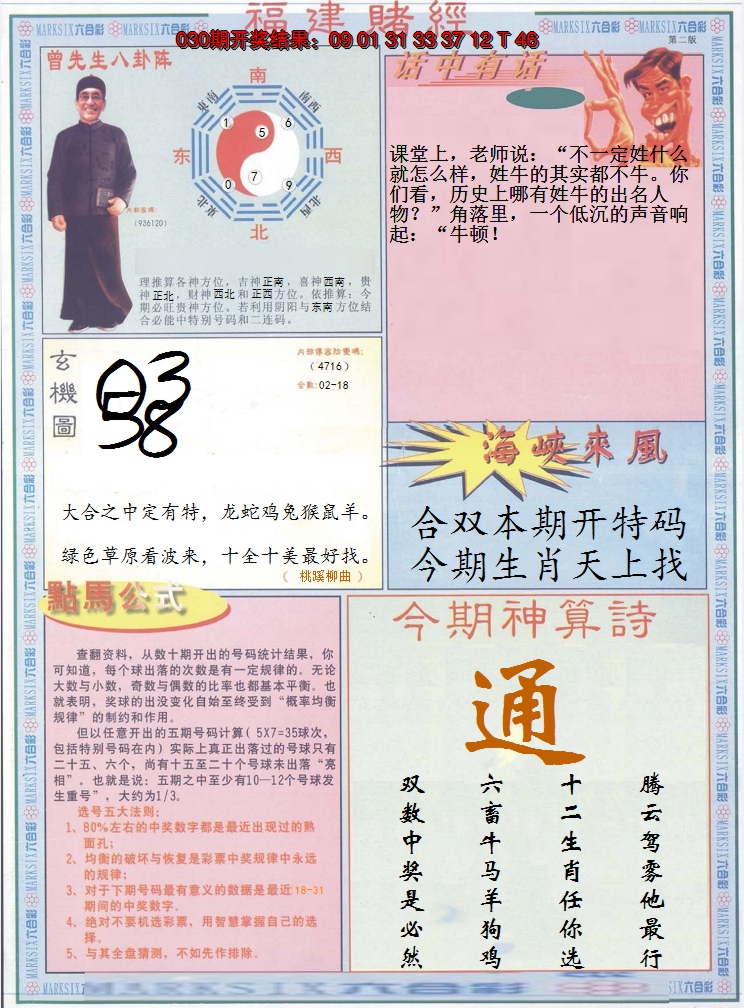 福建賭經
030期开奖结果：09 01 31 33 37 12 T 46
第二版
MARKSIX六合彩
曾先生八卦阵
南
东南
南西
1
5
6
东
西
0
7
9
东北
北西
北
内部密碼：
（936120）
理推算各神方位，吉神正南，喜神西南，贵
神正北，财神西北和正西方位。依推算：今
期必旺贵神方位。若利用阴阳与东南方位结
合必能中特别号码和二连码。
话中有话
课堂上，老师说：“不一定姓什么
就怎么样，姓牛的其实都不牛。你
们看，历史上哪有姓牛的出名人
物？”角落里，一个低沉的声音响
起：“牛顿！
玄機圖
（4716）
合数:02-18
大合之中定有特，龙蛇鸡兔猴鼠羊。
绿色草原看波来，十全十美最好找。
（ 桃蹊柳曲 ）
海峽來風
合双本期开特码
今期生肖天上找
點馬公式
查翻资料，从数十期开出的号码统计结果，你
可知道，每个球出落的次数是有一定规律的。无论
大数与小数，奇数与偶数的比率也都基本平衡。也
就表明，奖球的出没变化自始至终受到“概率均衡
规律”的制约和作用。
但以任意开出的五期号码计算( 5X7=35球次，
包括特别号码在内）实际上真正出落过的号球只有
二十五、六个，尚有十五至二十个号球未出落“亮
相”。也就是说：五期之中至少有10—12个号球发
生重号”，大约为1/3。
选号五大法则：
1、80%左右的中奖数字都是最近出现过的熟
面孔；
2、均衡的破坏与恢复是彩票中奖规律中永远
的规律；
3、对于下期号码最有意义的数据是最近18-31
期间的中奖数字。
4、绝对不要机选彩票，用智慧掌握自己的选
择。
5、与其全盘猜测，不如先作排除。
今期神算詩
通
腾云驾雾他最行
十二生肖任你选
六畜牛马羊狗鸡
双数中奖是必然